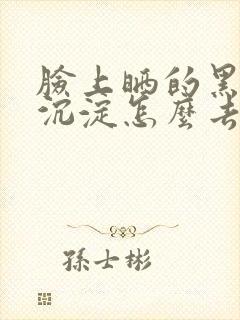 臉上晒的黑
沉淀怎麼去
孫士彬